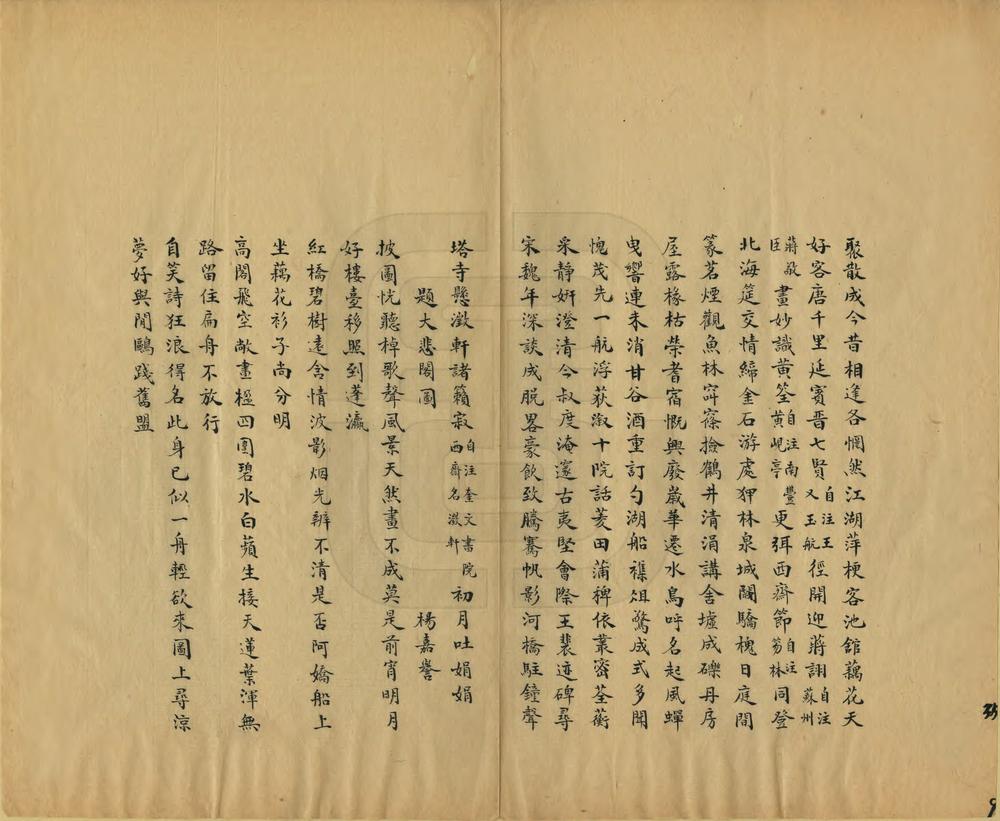 聚散成今昔相逢各惘然江湖萍梗客池舘藕花天
好客唐千里延賓晋七賢自注王又玉航徑開迎蔣詡自注蘇州
蔣敬臣畫妙識黃筌自注南豐黃峴亭更弭西齋節自注芴林同登
北海筵交情締金石游處狎林泉城闉驕槐日庭間
篆茗煙觀魚林窣窱撿鶴井清涓講舍墟成礫丹房
屋露椽枯榮耆宿慨興廢歲華遷水鳥呼名起風蟬
曳響連未消甘谷酒重訂勺湖船襍俎驚成式多聞
愧茂先一航浮荻溆十院話菱田蒲稗依叢密荃蘅
采靜妍澄清今叔度淹邃古夷堅會際王裴迹碑尋
宋魏年深談成脫畧豪飲致騰騫帆影河橋駐鐘聲
塔寺懸澂軒諸籟寂自注奎文書院西齋名澂軒初月吐娟娟
題大悲閣圖 楊嘉譽
披圖恍聽棹歌聲風景天然畫不成莫是前宵明月
好樓臺移照到蓬瀛
紅橋碧樹遠含情波影烟光辨不清是否阿嬌船上
坐藕花衫子尚分明
高閣飛空敞畫楹四圍碧水白蘋生接天蓮葉渾無
路留住扁舟不放行
自笑詩狂浪得名此身已似一舟輕欲來圖上尋涼
夢好與閒鷗踐舊盟